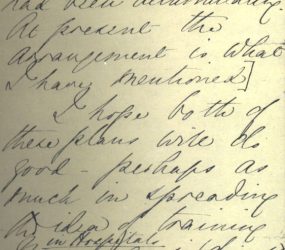 had been accidentally.
At present the
arrangement is what
I have mentioned]
I hope both of
these plans will do
good - perhaps as
much in spreading
the idea of training
in Hospitals